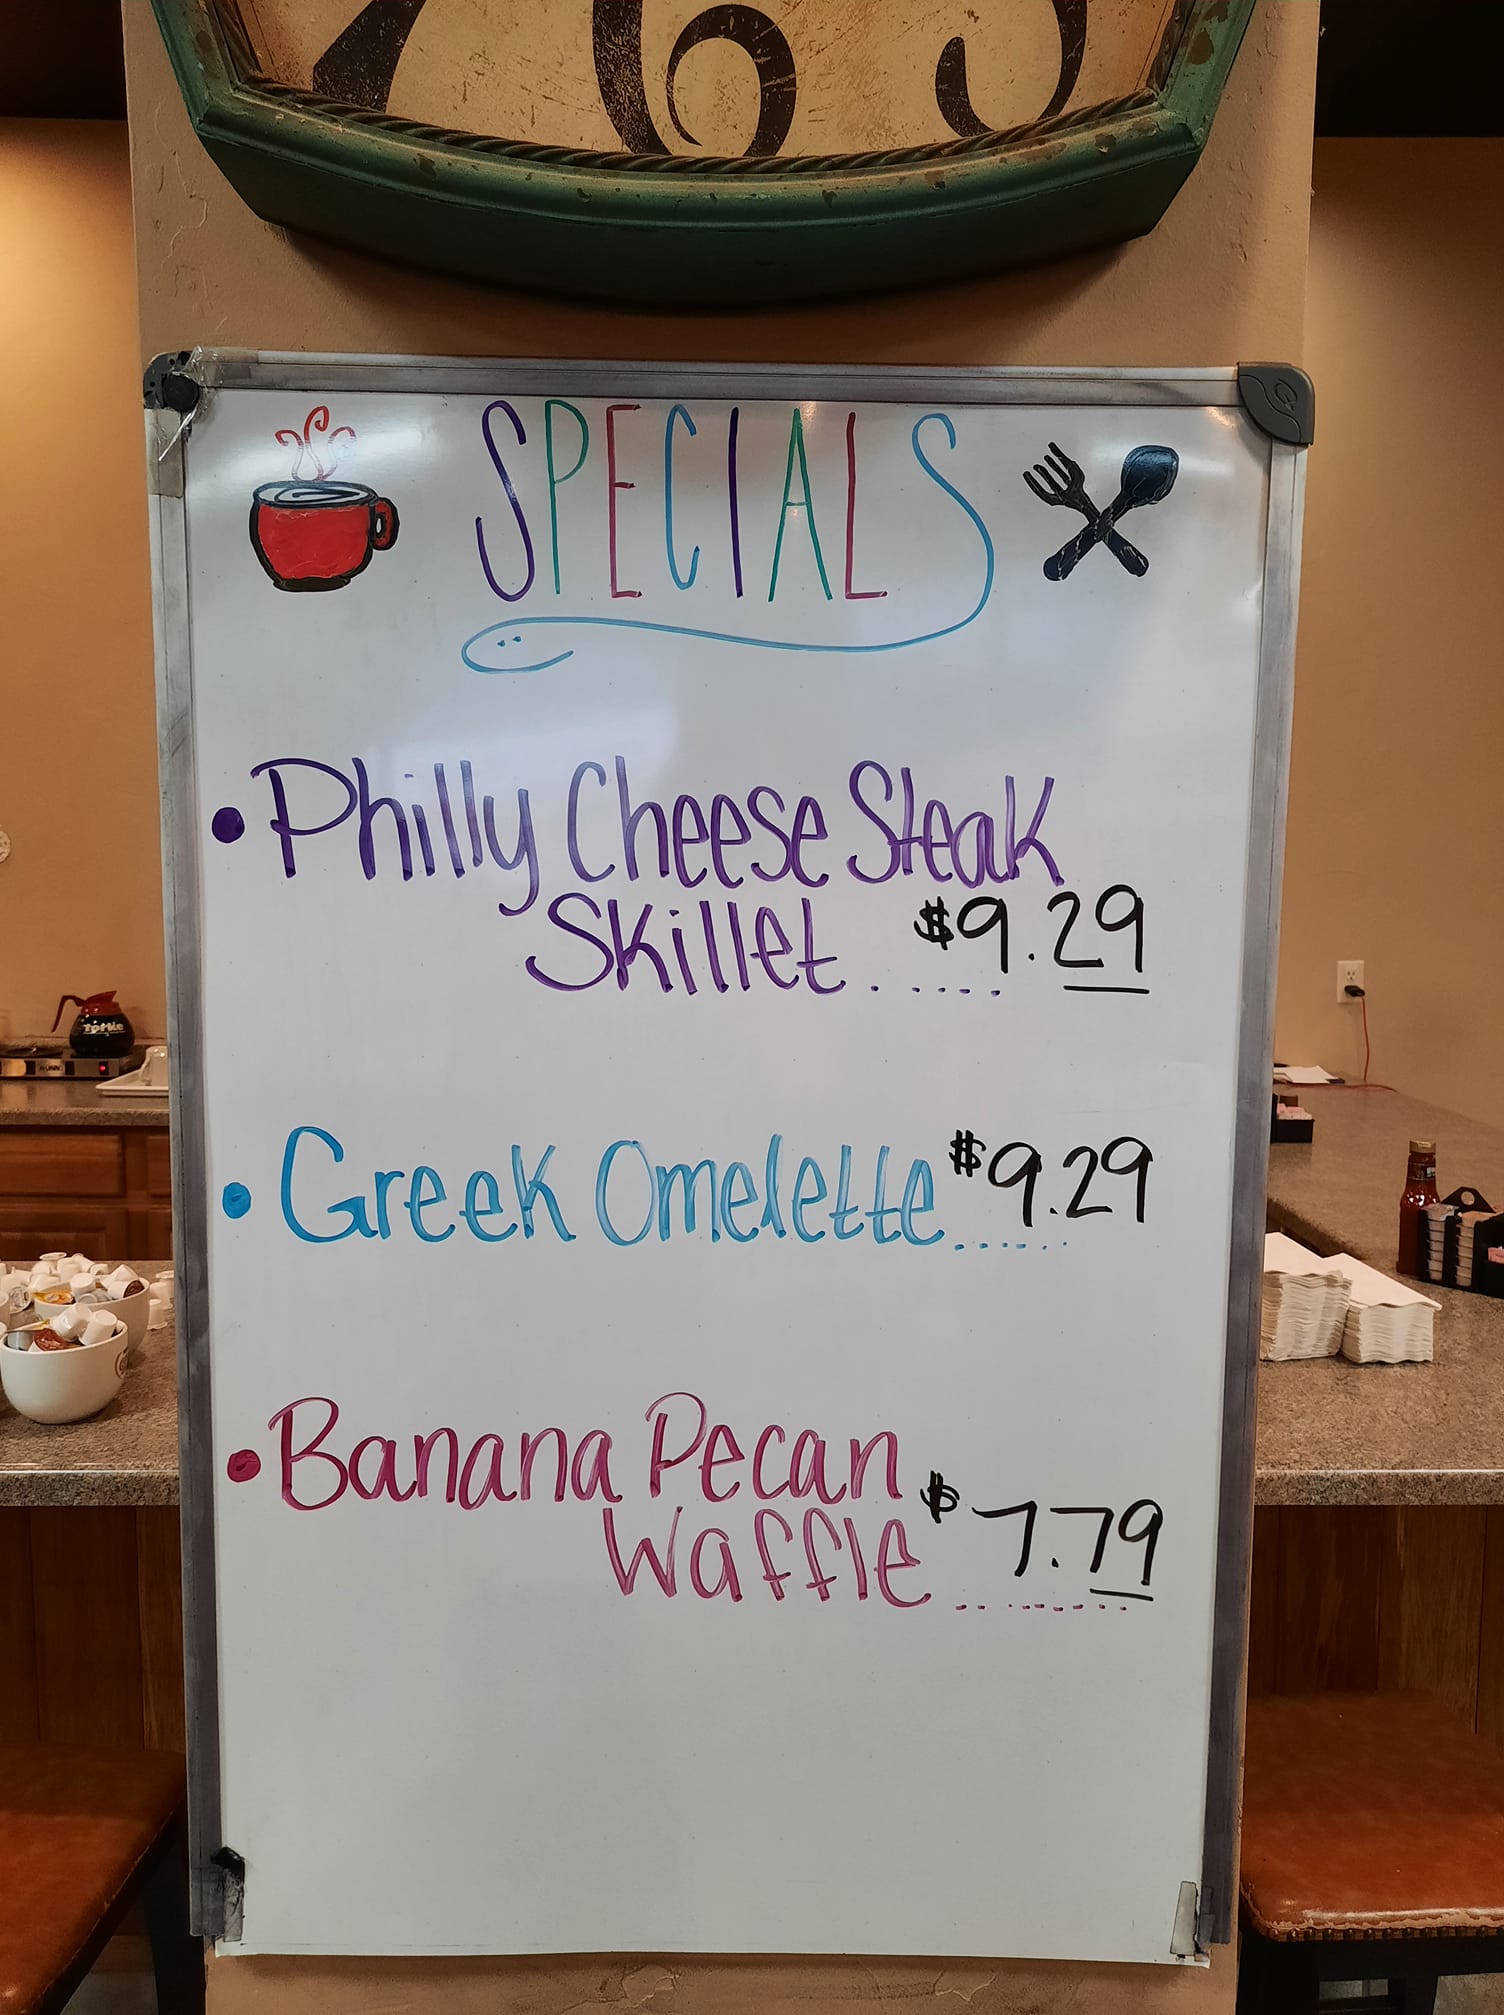 7 6 5
SPECIALS
• Philly Cheese Steak
Skillet ..... $9.29
• Greek Omelette ...... $9.29
• Banana Pecan
Waffle ....... $7.79